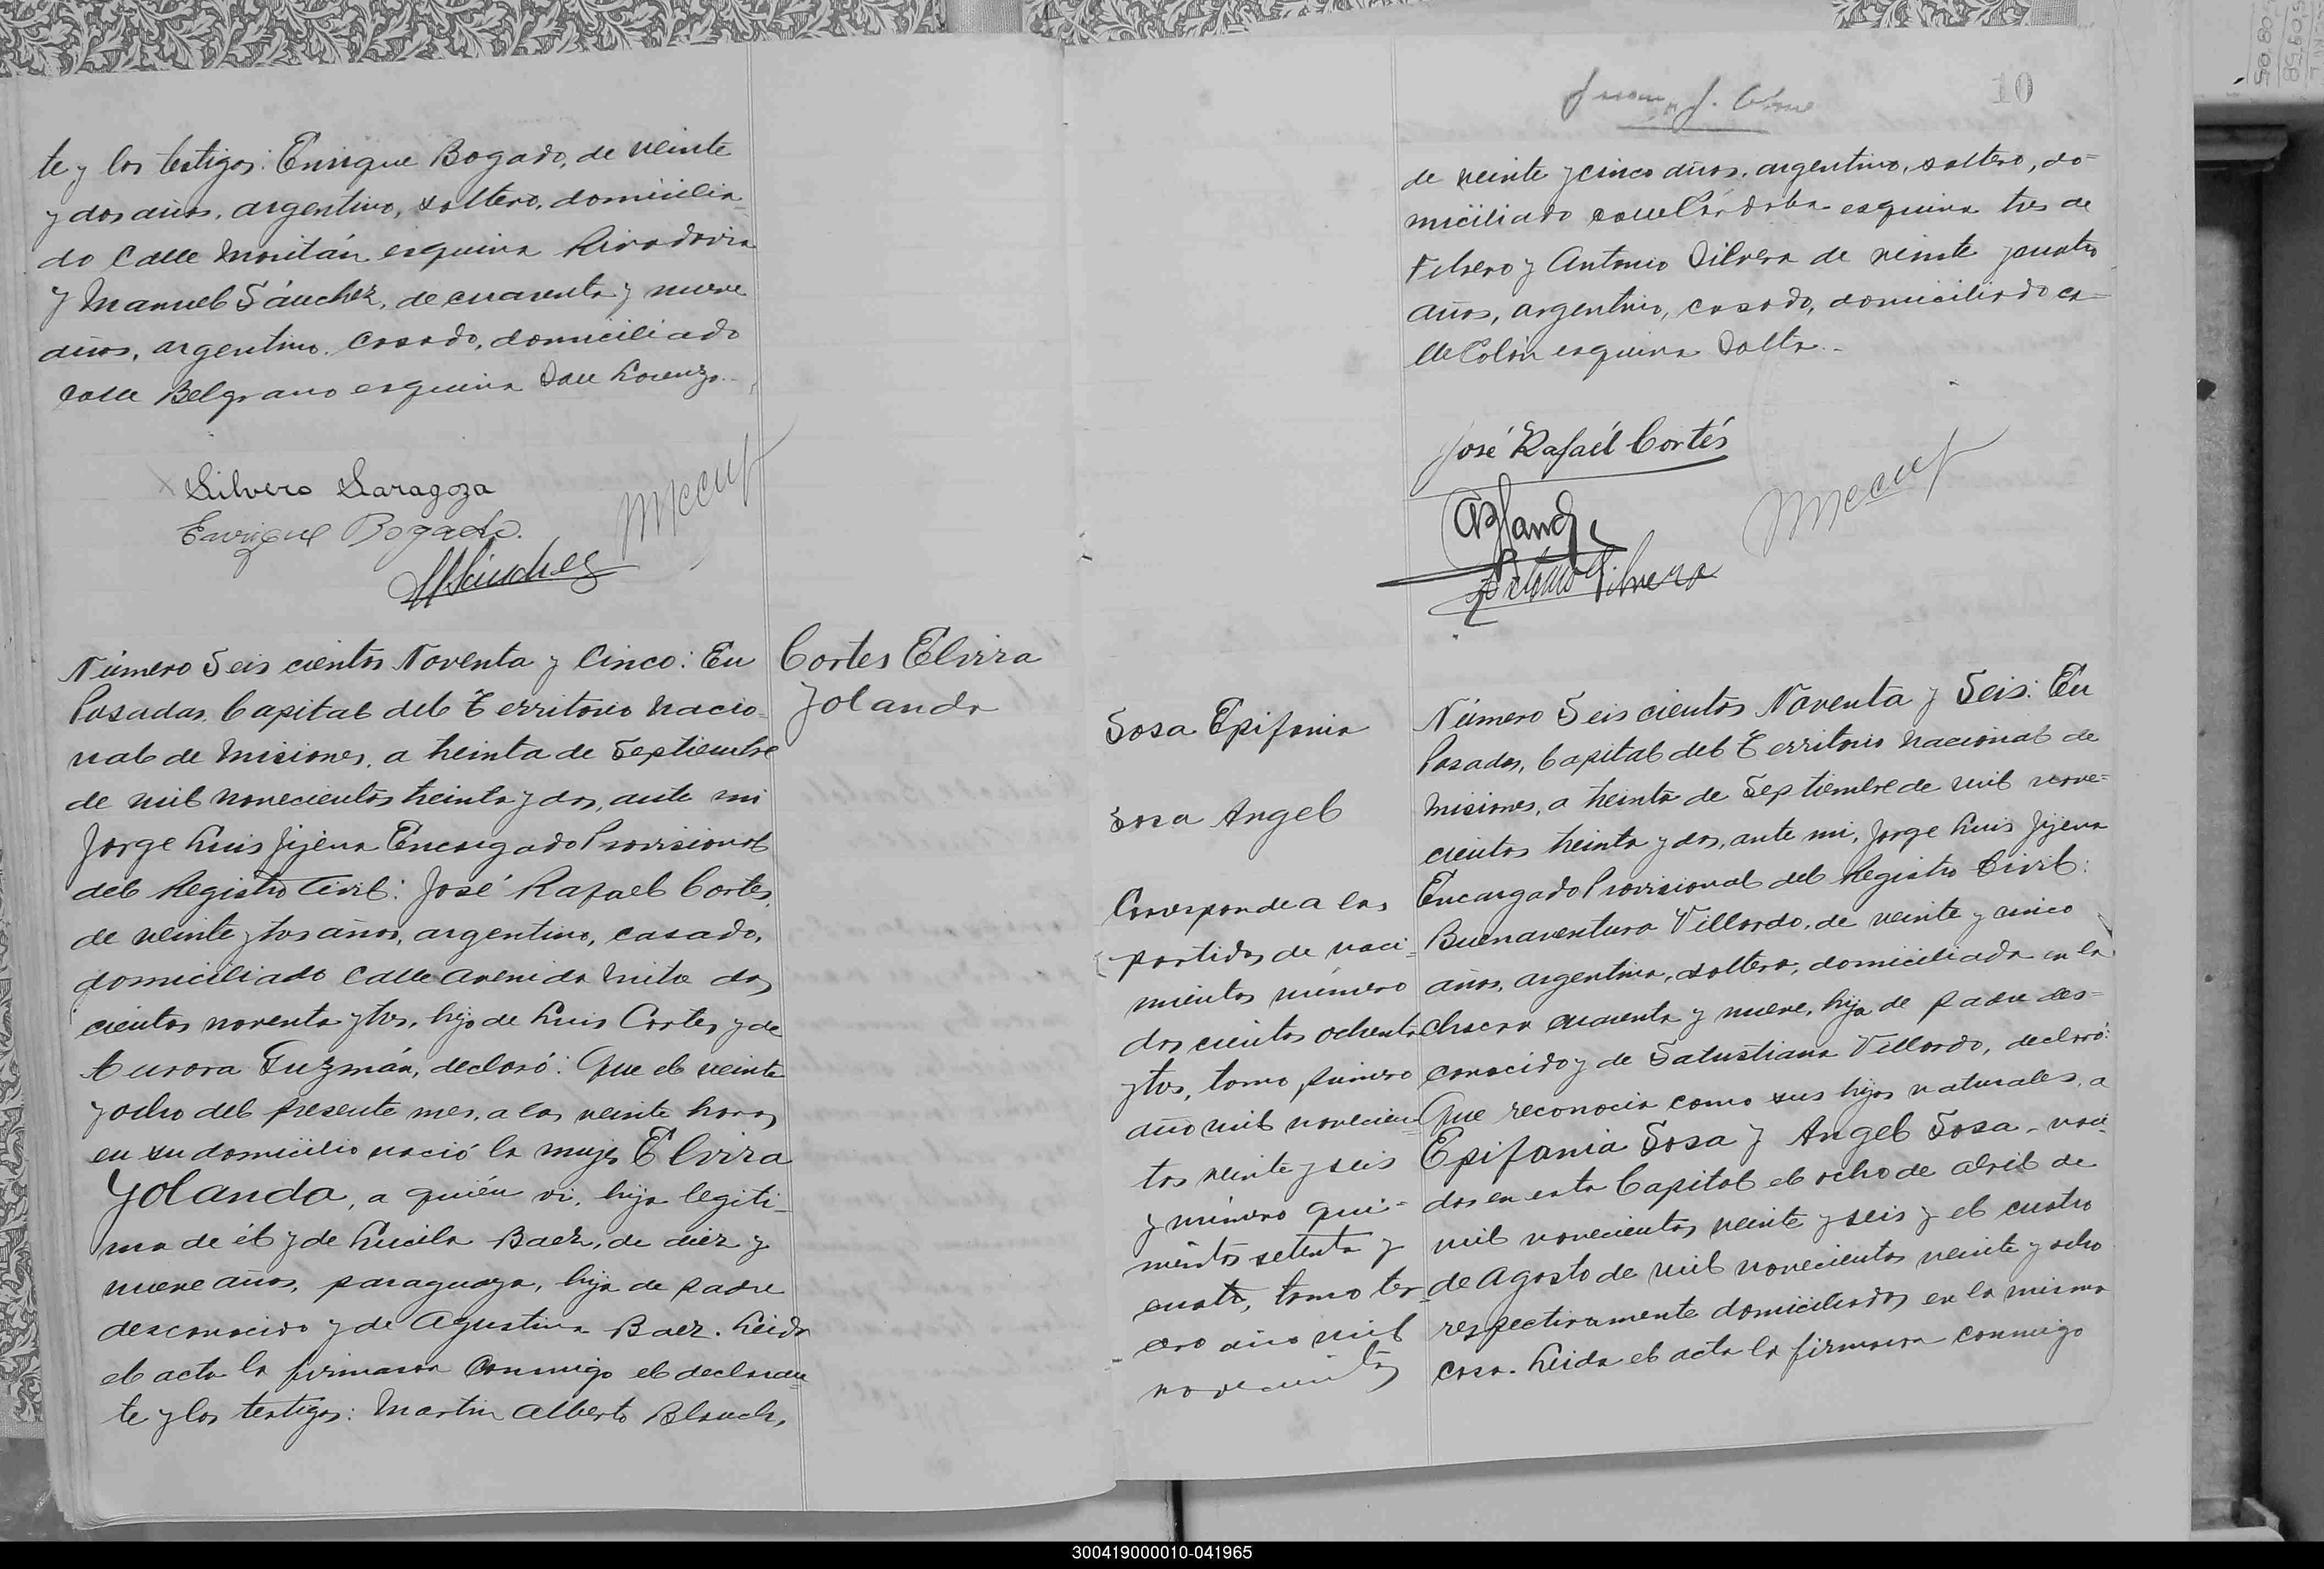 te y los testigos: Enrique Bogado, de veinte
y dos años, argentino, soltero, domicilia
do Calle Moritán esquina Rivadavia
y Manuel Sánchez, de cuarenta y nueve
años, argentino, casado, domiciliado
calle Belgrano esquina San Lorenzo.
Silvero Saragoza
Enrique Bogado.
MSánchez
Número Seis cientos Noventa y Cinco: En
Posadas, Capital del Territorio Nacio
nal de Misiones, a treinta de Septiembre
de mil novecientos treinta y dos, ante mi
Jorge Luis Jijena Encargado Provisional
del Registro Civil: José Rafael Cortes,
de veinte y tres años, argentino, casado,
domiciliado Calle Avenida Mitre dos
cientos noventa y tres, hijo de Luis Cortes y de
Aurora Guzmán, declaró: Que el veinte
y ocho del presente mes, a las veinte horas
en su domicilio nació la mujer Elvira
Yolanda, a quién vi, hija legiti
ma de él y de Lucila Baez, de diez y
nueve años, paraguaya, hija de padre
desconocido y de Agustina Baez. Leida
el acta la firmaron conmigo el declaran
te y los testigos: Martin Alberto Blanch,
Cortes Elvira
Yolanda
10
de veinte y cinco años, argentino, soltero, do
miciliado calle Córdoba esquina tres de
Febrero y Antonio Silvera de veinte y cuatro
años, argentino, casado, domiciliado ca
lle Colón esquina Salta.
José Rafaél Cortés
ABlanch
Antonio Silvera
Sosa Epifania
Sosa Angel
Corresponde a las
partidas de naci
mientos número
dos cientos ochenta
y tres, tomo primero
año mil novecien
tos veinte y seis
y número qui-
nientos setenta y
cuatro, tomo ter
cero año mil
novecientos
Número Seis cientos Noventa y Seis: En
Posadas, Capital del Territorio Nacional de
Misiones, a treinta de Septiembre de mil nove-
cientos treinta y dos, ante mi, Jorge Luis Jijena
Encargado Provisional del Registro Civil:
Buenaventura Villordo, de veinte y cinco
años, argentina, soltera, domiciliada en la
chacra cuarenta y nueve, hija de padre des-
conocido y de Satustiana Villordo, declaró:
Que reconocia como sus hijos naturales, a
Epifania Sosa y Angel Sosa - naci
dos en esta Capital el ocho de abril de
mil novecientos veinte y seis y el cuatro
de Agosto de mil novecientos veinte y ocho
respectivamente domiciliados en la misma
casa. Leida el acta la firmaron conmigo
300419000010-041965